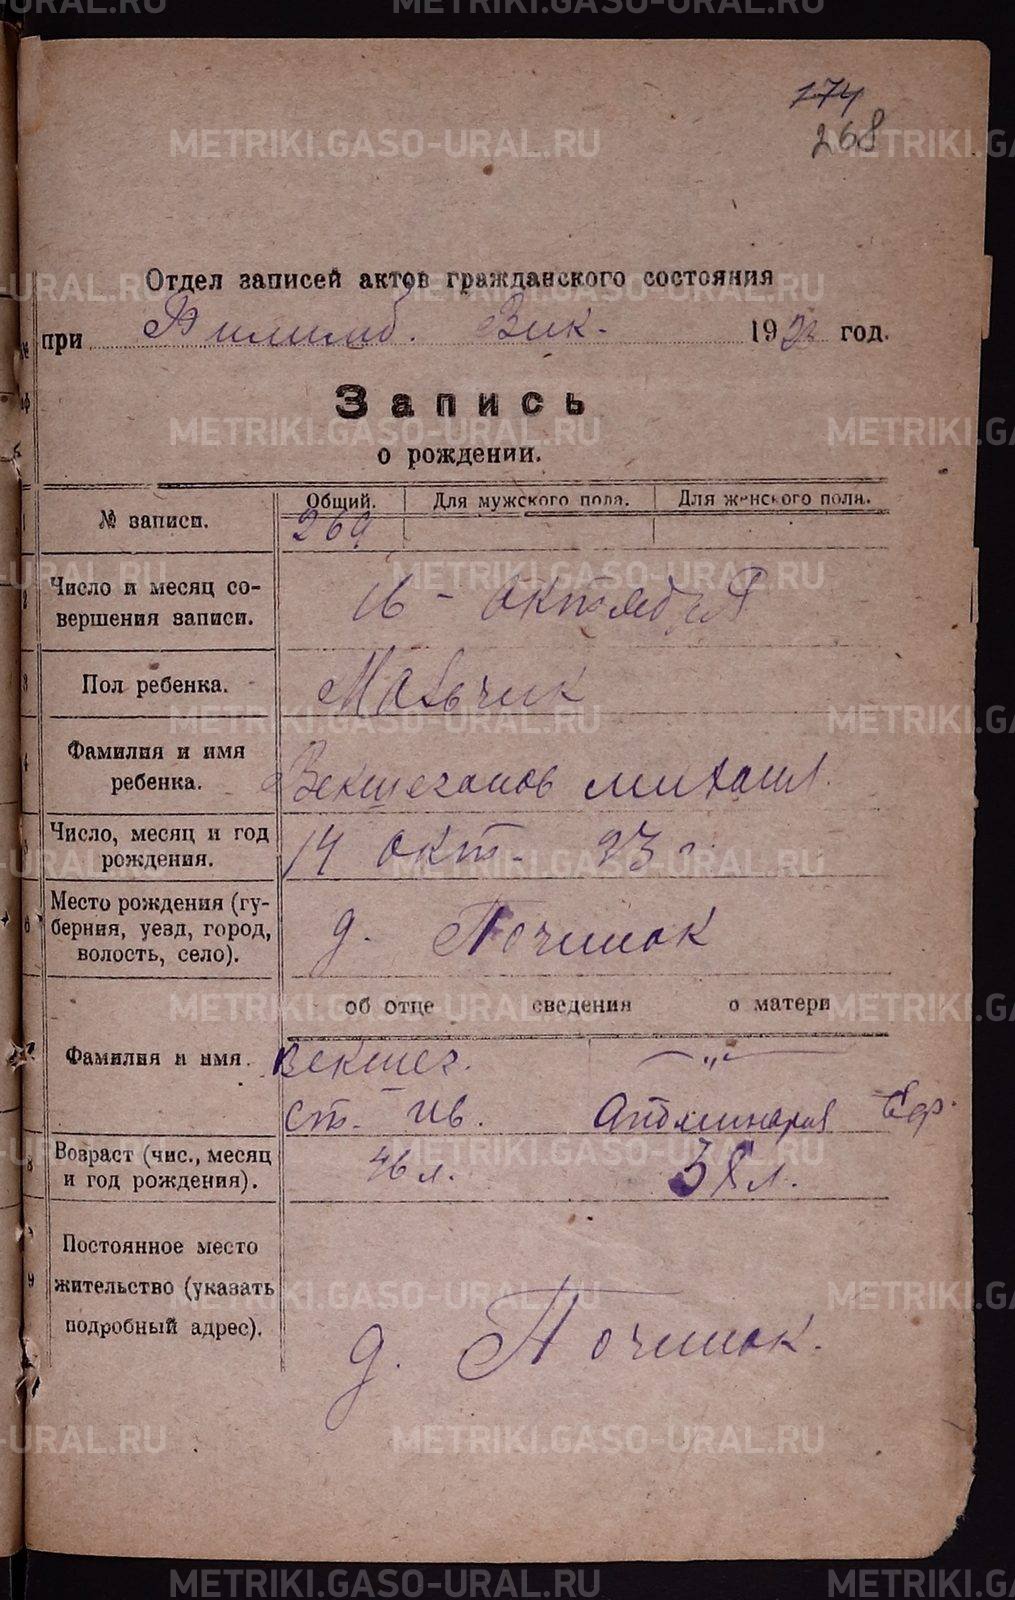 174
268
Отдел записей актов гражданского состояния
при Филимоб. Вик. 1923 год.
Запись
о рождении.
№ записи.
Общий. Для мужского пола. Для женского пола.
269
Число и месяц со-
вершения записи.
16 - октября
Пол ребенка.
Мальчик
Фамилия и имя
ребенка.
Векшегонов михаил.
Число, месяц и год
рождения.
14 окт. 23 г.
Место рождения (гу-
берния, уезд, город,
волость, село).
д. Починок
об отце сведения о матери
Фамилия и имя.
Векшег. — „ —
ст. ив. Апполинария Еф.
Возраст (чис., месяц
и год рождения).
46 л. 38 л.
Постоянное место
жительство (указать
подробный адрес).
д. Починок.
METRIKI.GASO-URAL.RU